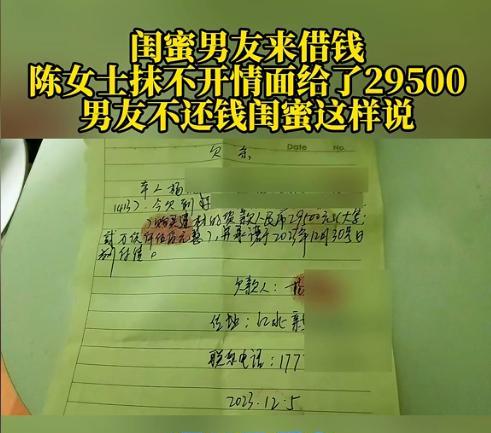 闺蜜男友来借钱
陈女士抹不开情面给了29500
男友不还钱闺蜜这样说
欠条
Date No.
本人杨
今欠到
购买建材的货款人民币29500元(大写:
贰万玖仟伍佰元整),并承诺于2023年12月30号日
前付清。
欠款人:杨
住址:江北新
联系电话:177
2023.12.5